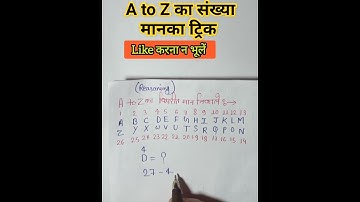 A to Z का संख्या
मानका ट्रिक
Like करना न भूलें
(Reasoning)
A to Z का विपरीत मान निकालते है→
1 2 3 4 5 6 7 8 9 10 11 12 13
A B C D E F G H I J K L M
Z Y X W V U T S R Q P O N
26 25 24 23 22 21 20 19 18 17 16 15 14
4
D = ?
27-4